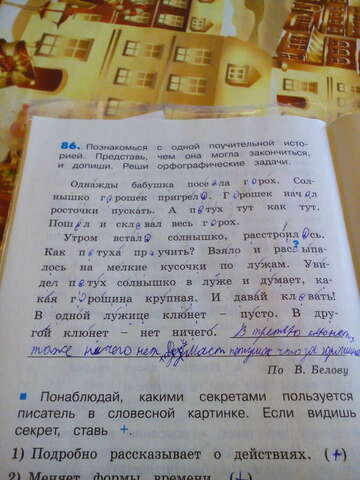 86. Познакомься с одной поучительной исто-
рией. Представь, чем она могла закончиться,
и допиши. Реши орфографические задачи.
Однажды бабушка посеяла горох. Сол-
нышко горошек пригрело. Горошек начал
росточки пускать. А петух тут как тут.
Пошёл и склевал весь горох.
Утром встало солнышко, расстроилось.
Как петуха проучить? Взяло и рассыпа-
лось на мелкие кусочки по лужам. Уви-
дел петух солнышко в луже и думает, ка-
кая горошина крупная. И давай клевать!
В одной лужице клюнет – пусто. В дру-
гой клюнет – нет ничего. В третью клюнет,
тоже ничего нет. Думает петушок что за
По В. Белову
Понаблюдай, какими секретами пользуется
писатель в словесной картинке. Если видишь
секрет, ставь +.
1) Подробно рассказывает о действиях. (+)
2) Меняет формы времени. (+)